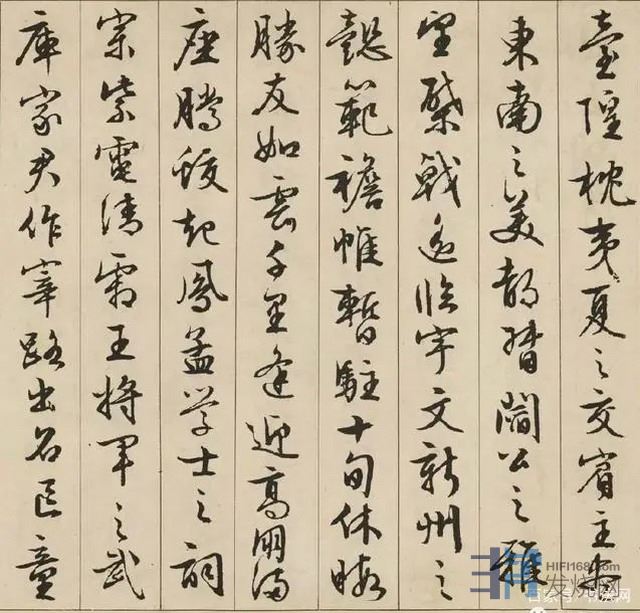 臺隍枕夷夏之交賓主盡
東南之美都督閻公之雅
望棨戟遙臨宇文新州之
懿範襜帷暫駐十旬休暇
勝友如雲千里逢迎高朋滿
座騰蛟起鳳孟學士之詞
宗紫電清霜王將軍之武
庫家君作宰路出名區童
HIFI168.com
发烧网